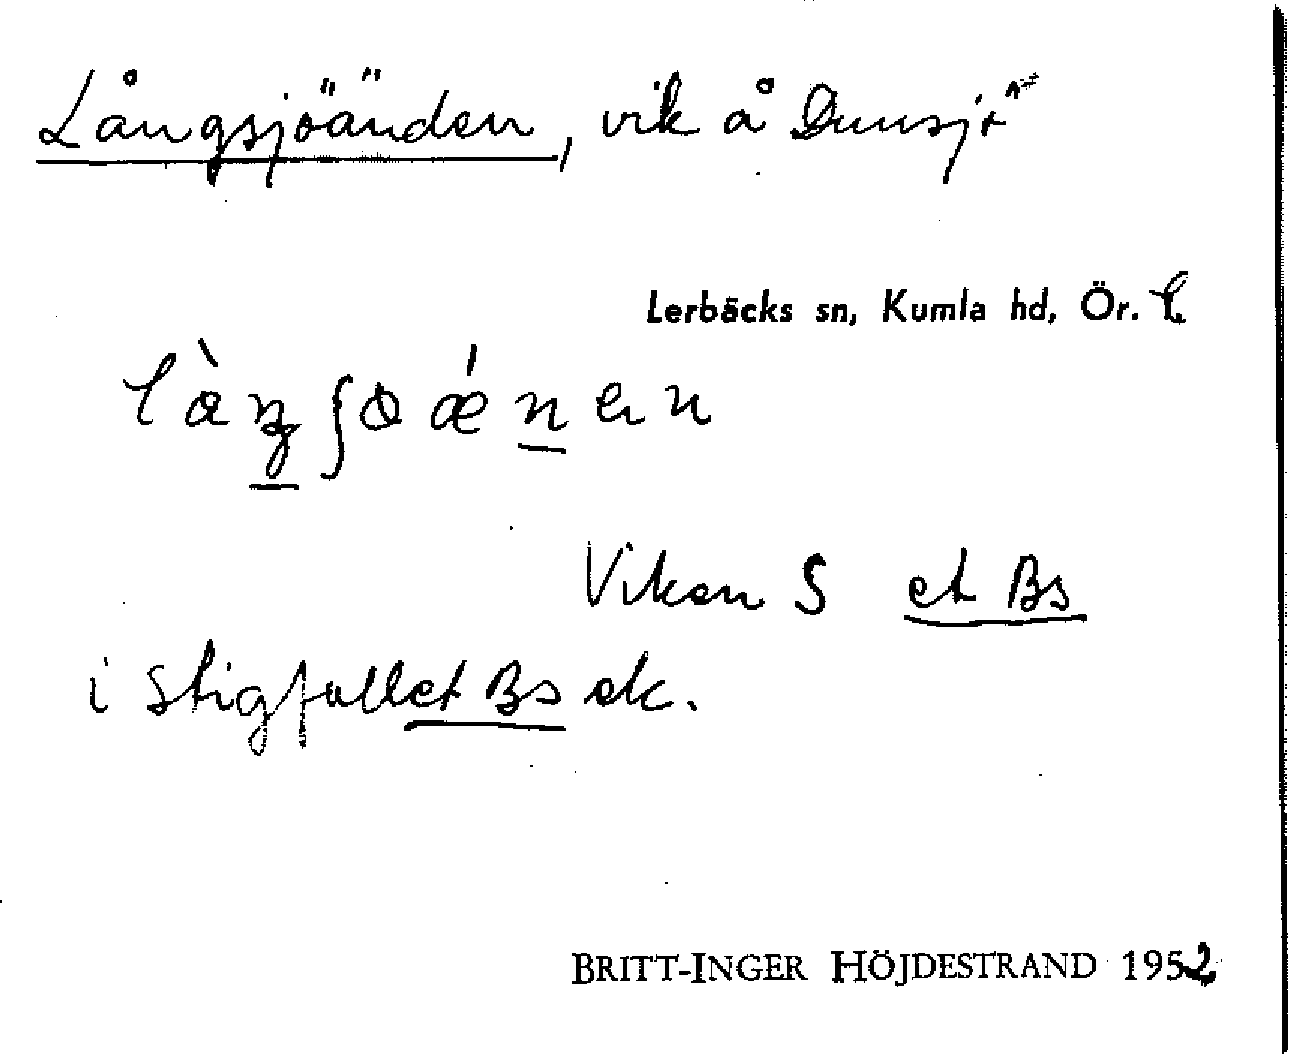 Långsjöänden, vik å Dunsjö
Lerbäcks sn, Kumla hd, Ör. l.
Viken S et Bs
i Stigfallet Bs ek.
BRITT-INGER HÖJDESTRAND 1952